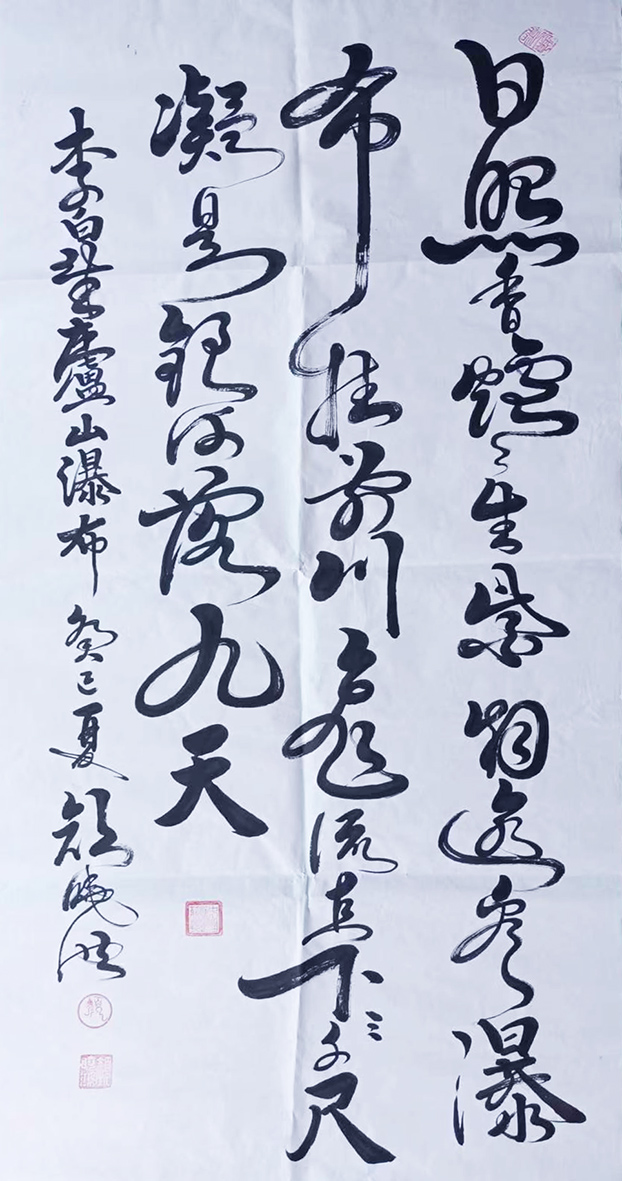 日照香爐生紫烟遥看瀑
布挂前川飛流直下三千尺
凝是銀河落九天
李白望廬山瀑布 癸巳夏 晓洪